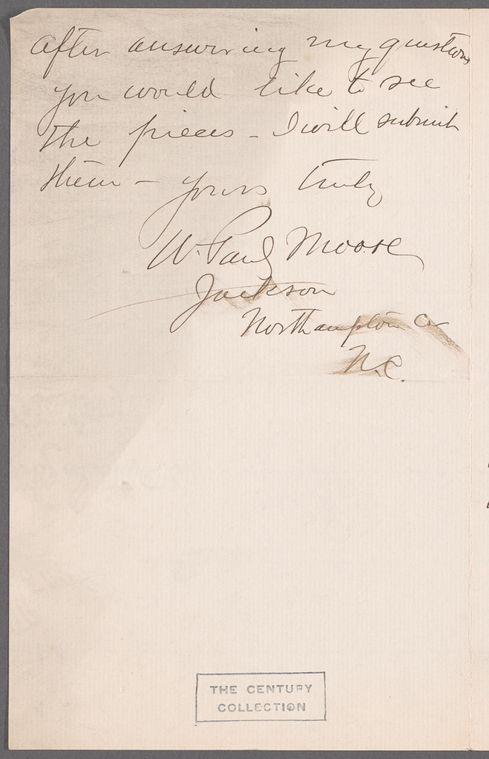 after answering my question
you would like to see
the pieces – I will submit
them – yours truly
W. Paul Moore
Jackson
Northampton Co
N.C.
THE CENTURY
COLLECTION